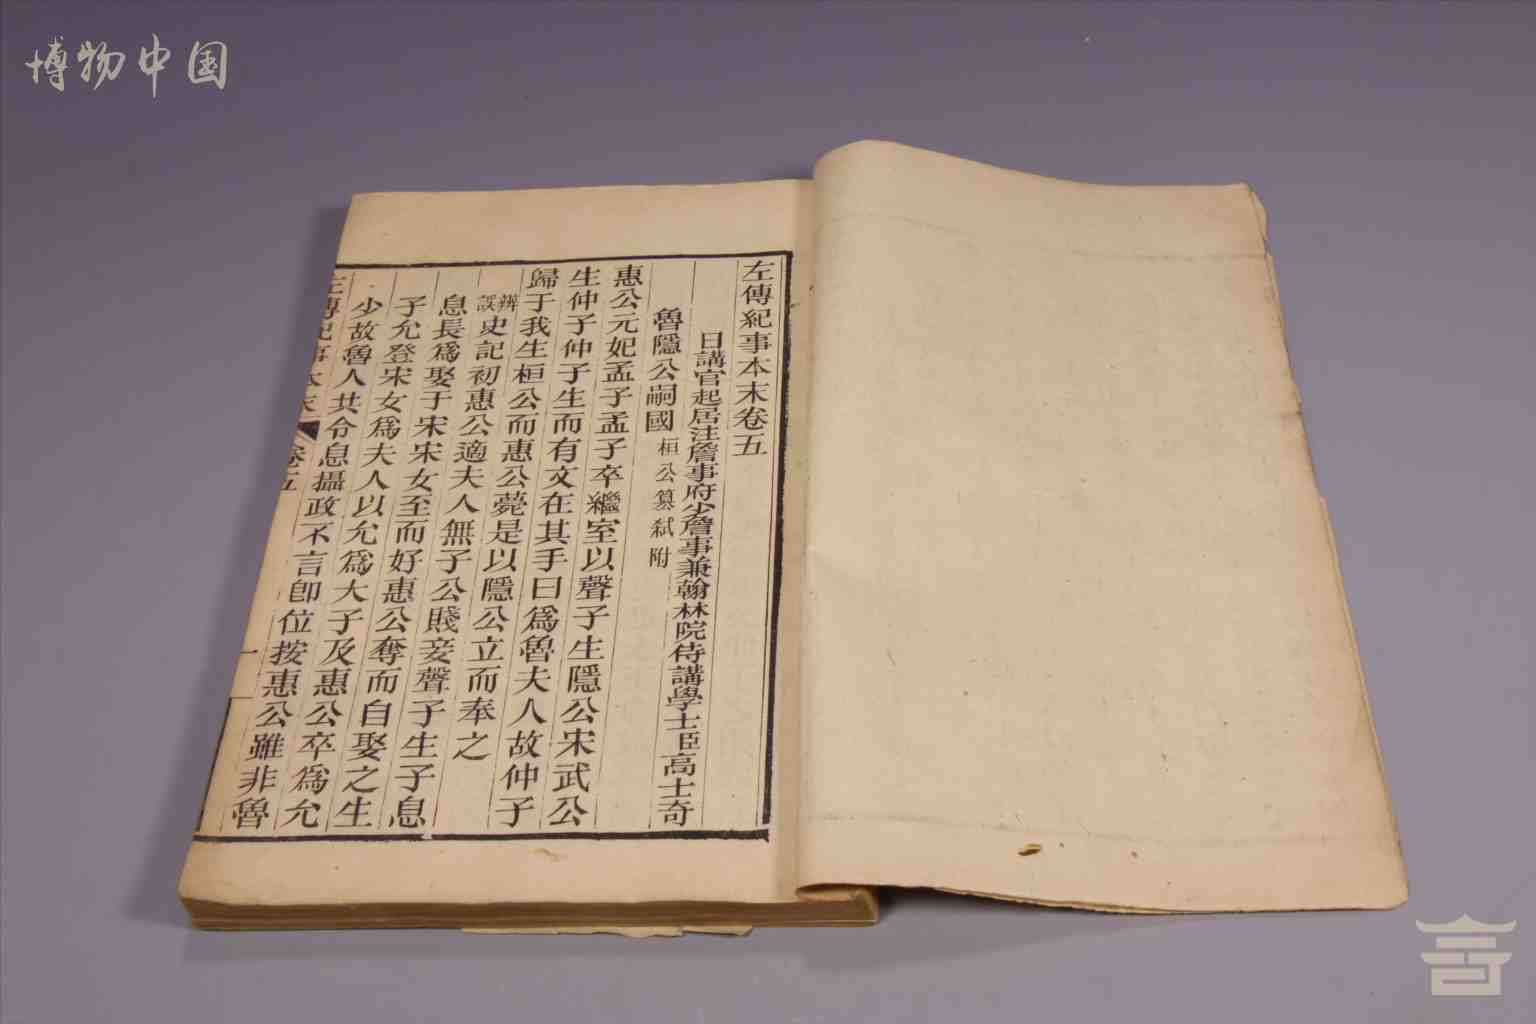 博物中国
左傳紀事本末卷五
日講官起居注詹事府少詹事兼翰林院侍講學士臣高士奇
魯隱公嗣國 桓公篡弒附
惠公元妃孟子孟子卒繼室以聲子生隱公宋武公
生仲子仲子生而有文在其手曰爲魯夫人故仲子
歸于我生桓公而惠公薨是以隱公立而奉之
辨誤史記初惠公適夫人無子公賤妾聲子生子息
息長爲娶于宋宋女至而好惠公奪而自娶之生
子允登宋女爲夫人以允爲大子及惠公卒爲允
少故魯人共令息攝政不言卽位按惠公雖非魯
左傳紀事本末 卷五 一